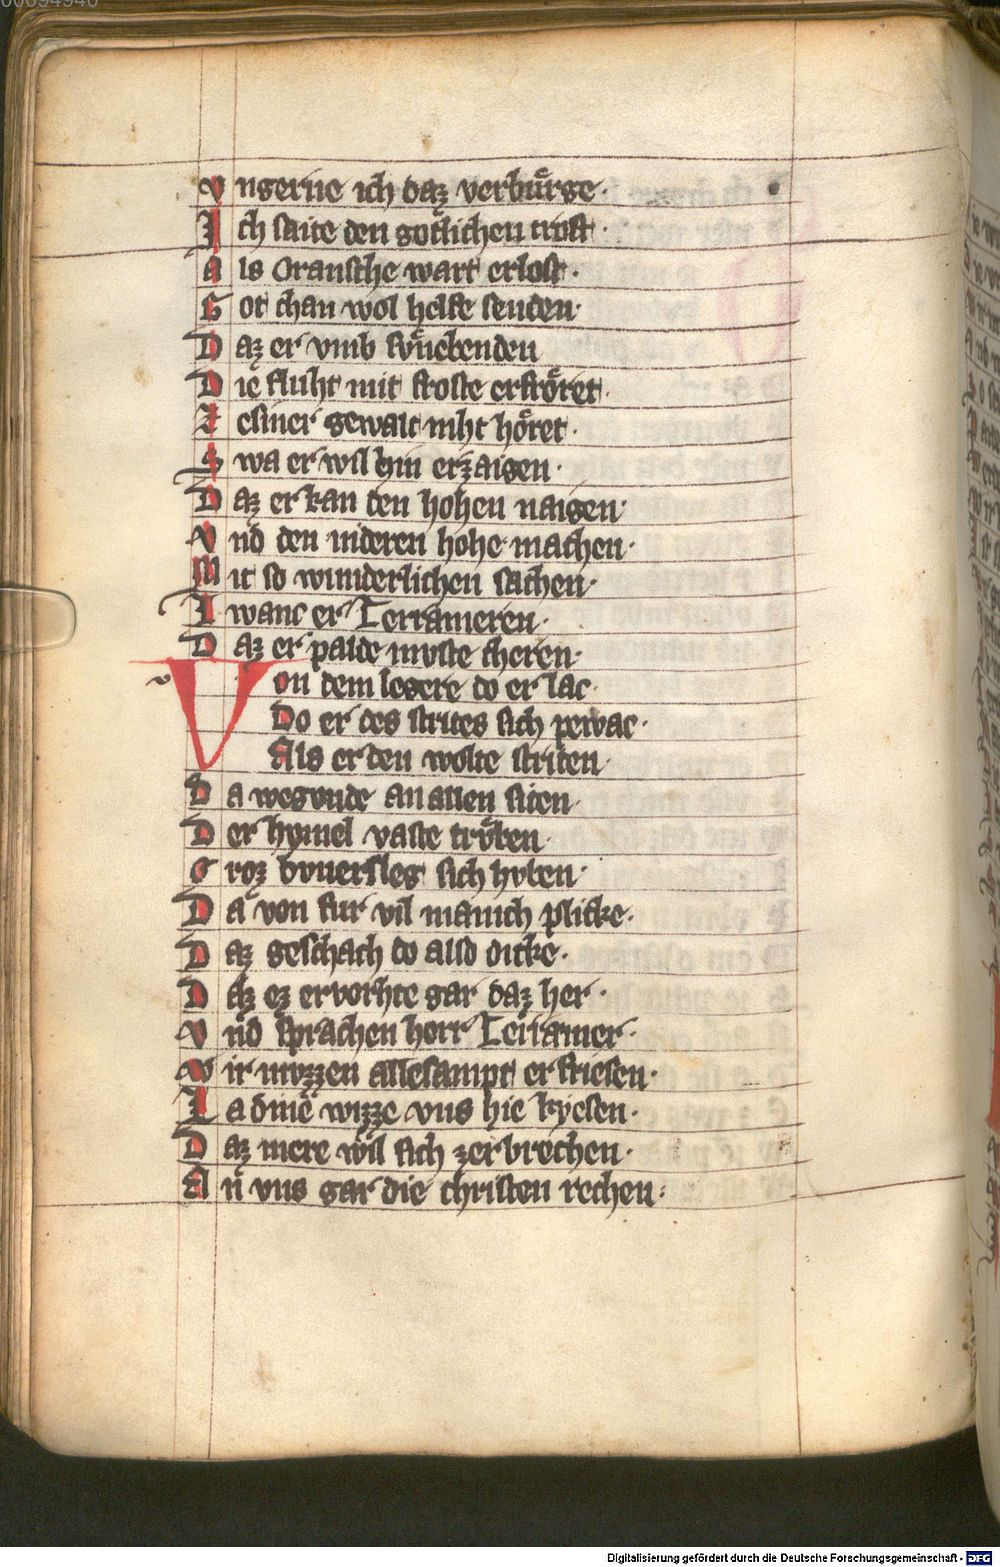 00094940
V ngerne ich daz verbuͤrge·
I ch saite den gotlichen trost·
A ls Oransche wart erlost·
G ot chan wol helfe senden·
D az er vmb svͤnebenden
D ie fluht mit froste erstoͤret·
I e siner gewalt niht hoͤret·
S wa er wil hin erzaigen·
D az er kan den hohen naigen·
V nd den nideren hohe machen·
M it so wunderlichen sachen·
T wanc er Terrameren·
D az er palde mvste cheren·
V on dem legere do er lac·
Do er des strites sich pewac·
Als er den wolte striten·
D a wegonde an allen siten·
D er hymel vaste truͤben·
G roz dvnersleg sich hvben·
D a von fur vil manich plicke·
D az geschach do also dicke·
D az ez ervorhte gar daz her·
V nd sprachen herr Terramer·
W ir mvzzen alle sampt erfriesen·
L a dinē wizze vns hie kyesen·
D az mere wil sich zerbrechen·
A n vns gar die christen rechen·
Digitalisierung gefördert durch die Deutsche Forschungsgemeinschaft - DFG